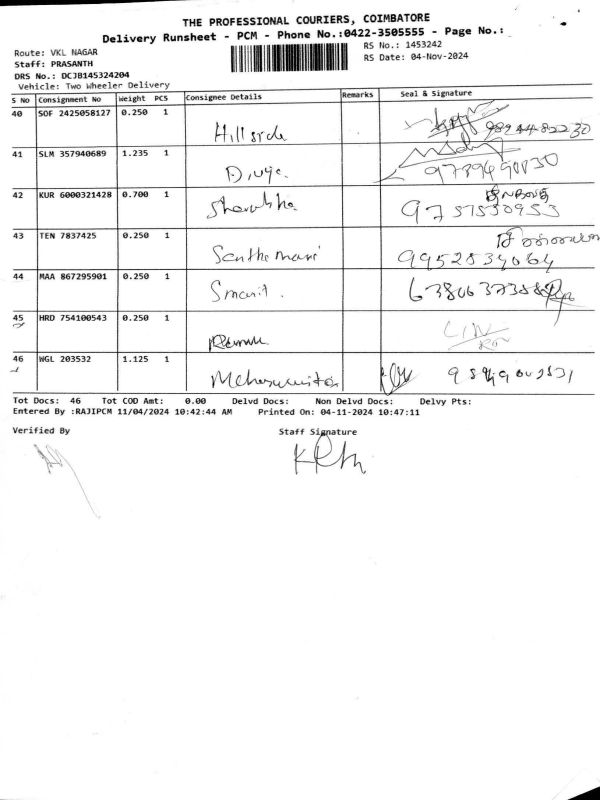 THE PROFESSIONAL COURIERS, COIMBATORE
Delivery Runsheet - PCM - Phone No.:0422-3505555 - Page No.:
Route: VKL NAGAR
RS No.: 1453242
Staff: PRASANTH
RS Date: 04-Nov-2024
DRS No.: DCJB145324204
Vehicle: Two Wheeler Delivery
S No Consignment No Weight PCS Consignee Details Remarks Seal & Signature
40 SOF 2425058127 0.250 1
Hillside
41 SLM 357940689 1.235 1
Divya
42 KUR 6000321428 0.700 1
9757550953
43 TEN 7837425 0.250 1
Santhemani
9952834064
44 MAA 867295901 0.250 1
45 HRD 754100543 0.250 1
46 WGL 203532 1.125 1
Tot Docs: 46 Tot COD Amt: 0.00 Delvd Docs: Non Delvd Docs: Delvy Pts:
Entered By :RAJIPCM 11/04/2024 10:42:44 AM Printed On: 04-11-2024 10:47:11
Verified By Staff Signature